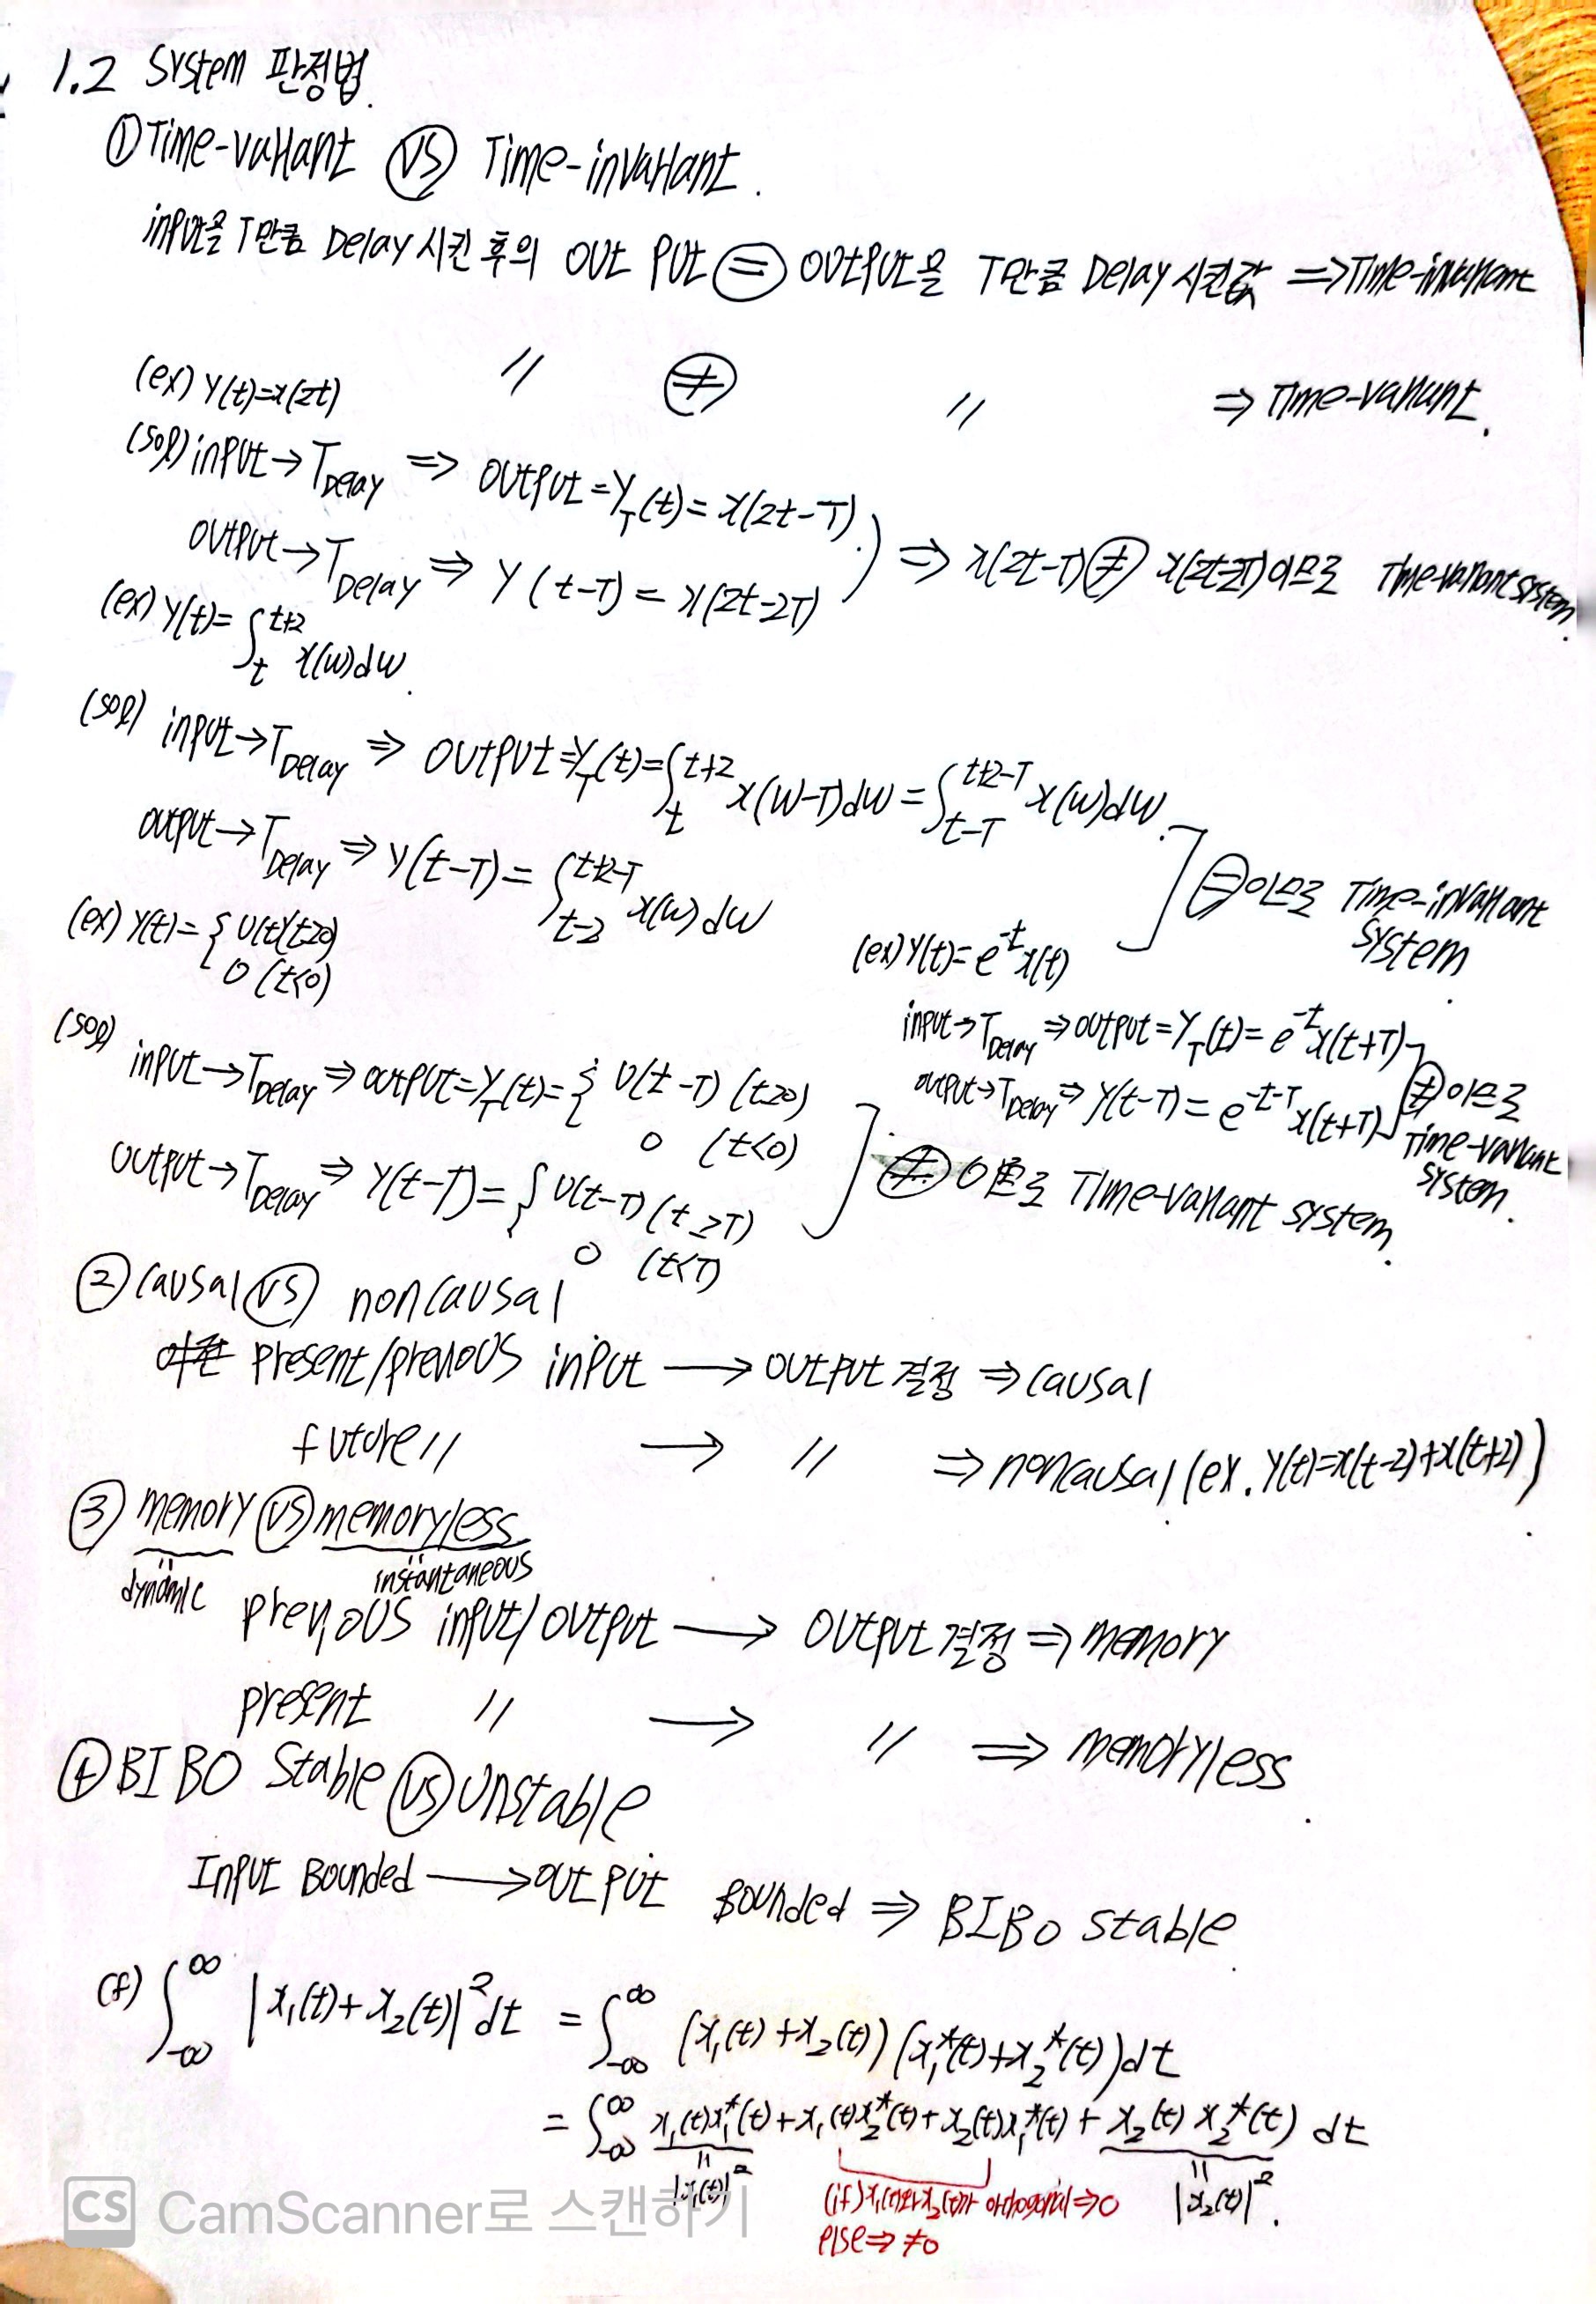 1.2 System 판정법.
① Time-variant VS Time-invariant.
input을 T만큼 Delay 시킨 후의 output = output을 T만큼 Delay 시킨값 ⇒ Time-invariant
〃 ≠ 〃 ⇒ Time-variant.
(ex) y(t)=x(2t)
(sol) input → T Delay ⇒ output = y_T(t) = x(2t-T).
output → T Delay ⇒ y(t-T) = x(2t-2T)
⇒ x(2t-T) ≠ x(2t-2T)이므로 Time-variant system.
(ex) y(t)= ∫_t^{t+2} x(w)dw.
(sol) input → T Delay ⇒ output = y_T(t) = ∫_t^{t+2} x(w-T)dw = ∫_{t-T}^{t+2-T} x(w)dw.
output → T Delay ⇒ y(t-T) = ∫_{t-2}^{t+2-T} x(w)dw
= 이므로 Time-invariant
system.
(ex) y(t)= { U(t) (t≥0)
0 (t<0)
(sol) input → T Delay ⇒ output = y_T(t) = { U(t-T) (t≥0)
0 (t<0)
output → T Delay ⇒ y(t-T) = { U(t-T) (t≥T)
0 (t<T)
≠ 이므로 Time-variant system.
(ex) y(t)= e^{-t}x(t)
input → T Delay ⇒ output = y_T(t) = e^{-t}x(t+T)
output → T Delay ⇒ y(t-T) = e^{-t-T}x(t+T)
≠ 이므로
Time-variant
system.
② causal VS noncausal
present/previous input → output 결정 ⇒ causal
future 〃 → 〃 ⇒ noncausal (ex. y(t)=x(t-2)+x(t+2))
③ memory VS memoryless
dynamic instantaneous
previous input/output → output 결정 ⇒ memory
present 〃 → 〃 ⇒ memoryless.
④ BIBO stable VS unstable
Input Bounded → output Bounded ⇒ BIBO stable.
(cf) ∫_{-∞}^{∞} |x₁(t)+x₂(t)|² dt = ∫_{-∞}^{∞} (x₁(t)+x₂(t))(x₁*(t)+x₂*(t))dt
= ∫_{-∞}^{∞} x₁(t)x₁*(t)+x₁(t)x₂*(t)+x₂(t)x₁*(t)+x₂(t)x₂*(t) dt
|x₁(t)|² (if) x₁(t)와 x₂(t)가 orthogonal ⇒ 0 |x₂(t)|².
else ⇒ ≠0
CS CamScanner로 스캔하기